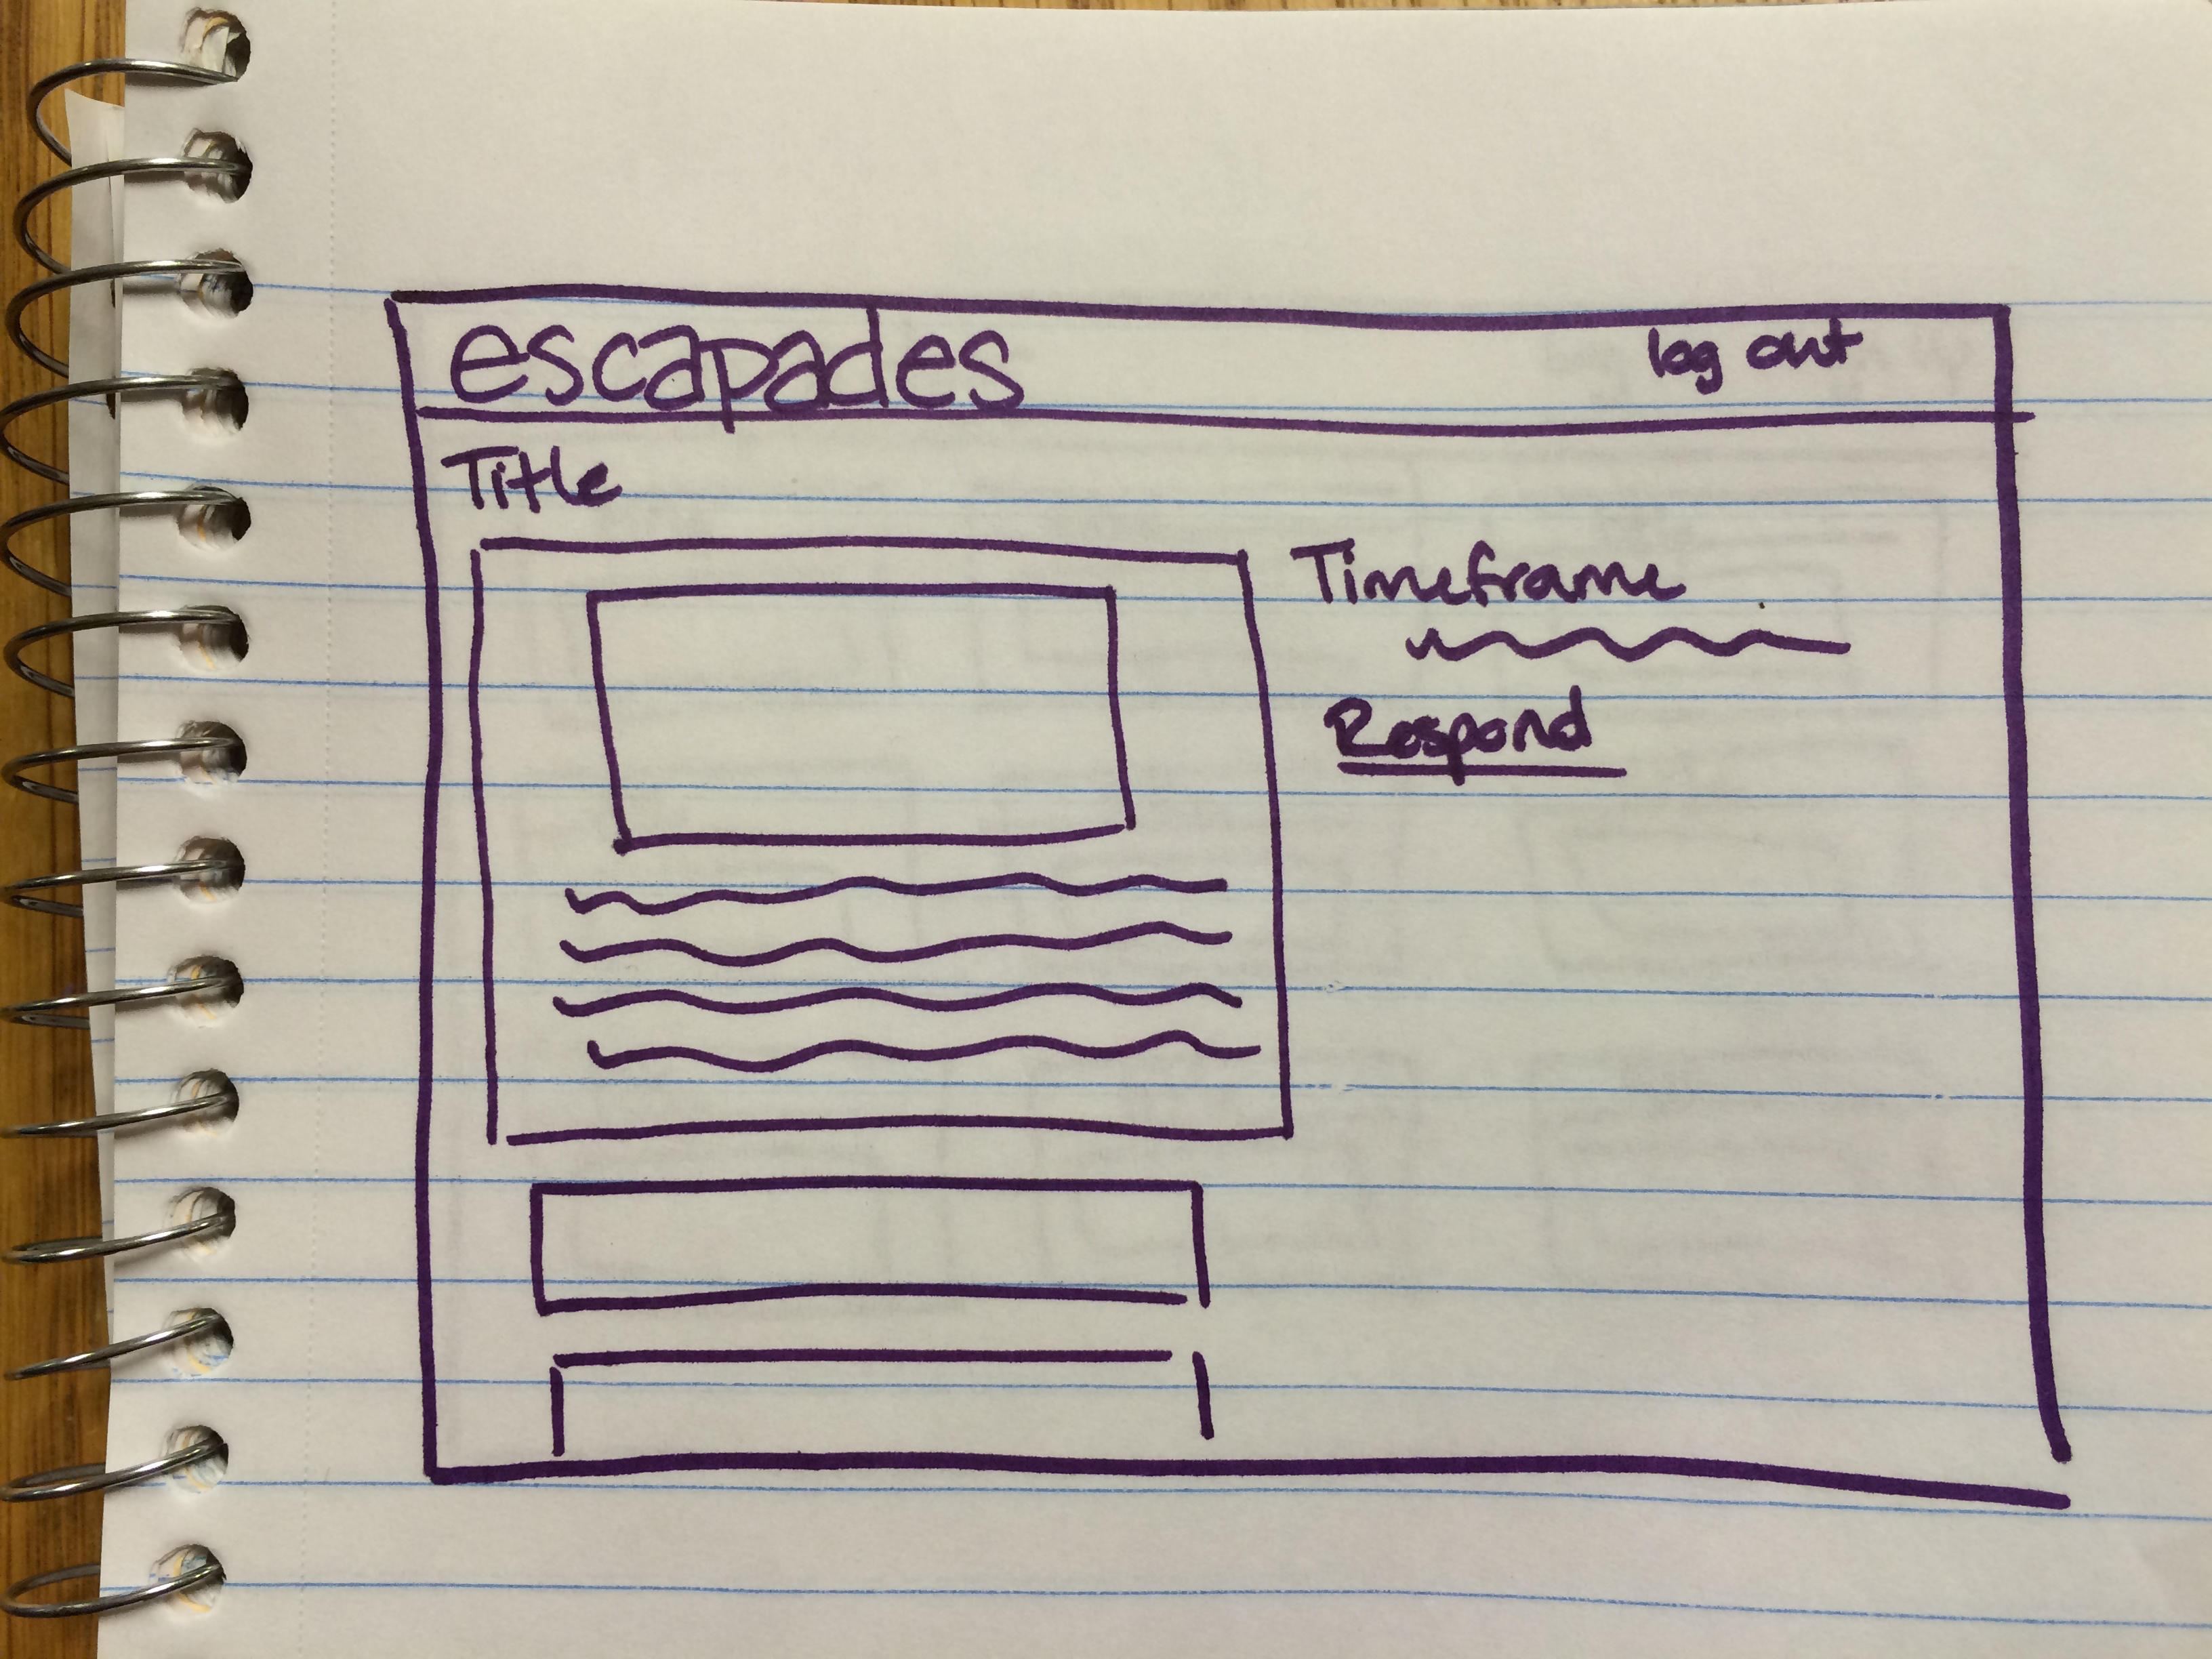 escapades log out
Title
Timeframe
Respond